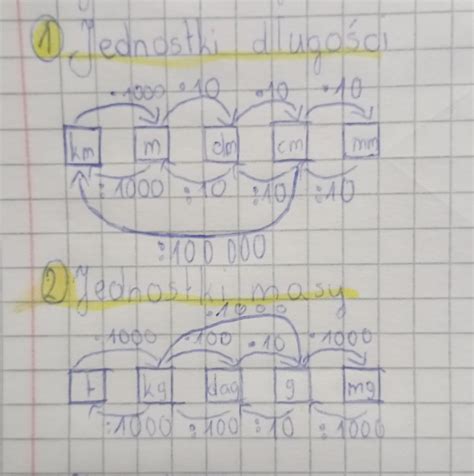 1) Jednostki długości
·1000 ·10 ·10 ·10
km m dm cm mm
:1000 :10 :10 :10
:100 000
2) Jednostki masy
·1000
·1000 ·100 ·10 ·1000
t kg dag g mg
:1000 :100 :10 :1000